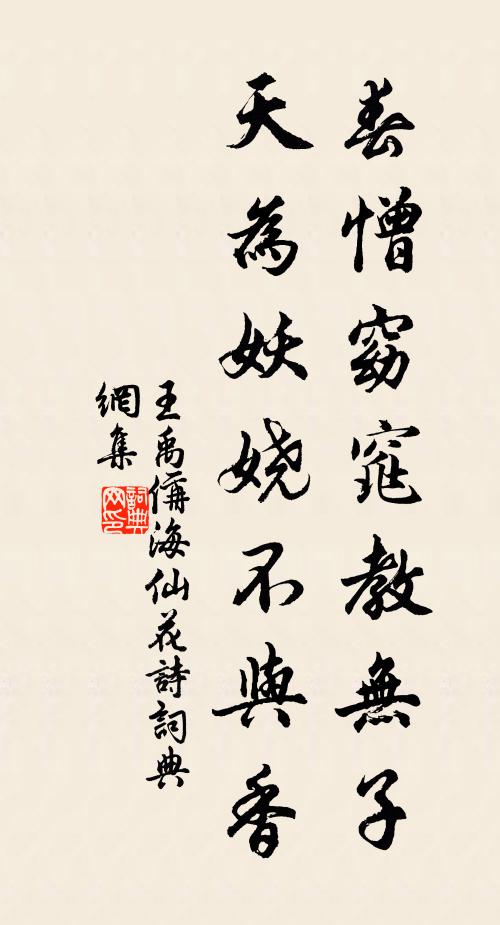 春憎窈窕教無子
天為妖嬈不與香
王禹偁海仙花詩詞典
網集
詞典
网印